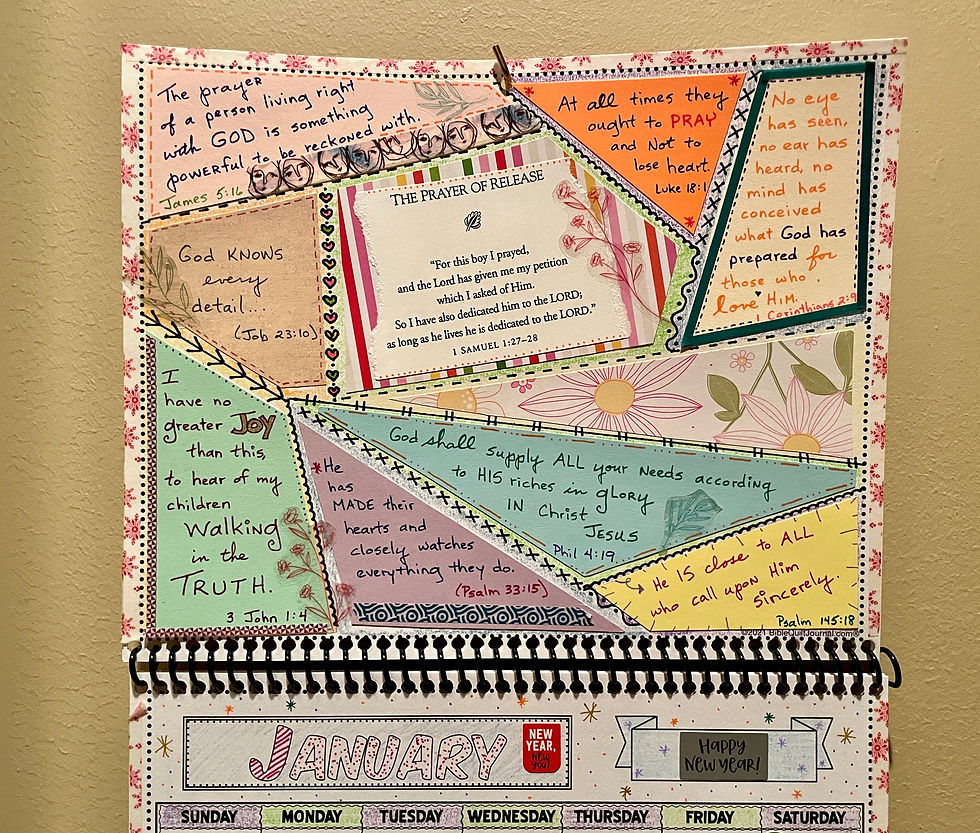 The prayer
of a person living right
with GOD is something
powerful to be reckoned with.
James 5:16
At all times they
ought to PRAY
and Not to
lose heart.
Luke 18:1
No eye
has seen,
no ear has
heard, no
mind has
conceived
what God has
prepared for
those who
love HIM.
1 Corinthians 2:9
God KNOWS
every
detail...
(Job 23:10)
THE PRAYER OF RELEASE
“For this boy I prayed,
and the Lord has given me my petition
which I asked of Him.
So I have also dedicated him to the LORD;
as long as he lives he is dedicated to the LORD.”
1 SAMUEL 1:27–28
I
have no
greater JOY
than this,
to hear of my
children
Walking
in the
TRUTH.
3 John 1:4
He
has
MADE their
hearts and
closely watches
everything they do.
(Psalm 33:15)
God shall supply ALL your Needs according
to HIS riches in glory
IN Christ
JESUS
Phil 4:19
He IS close to ALL
who call upon Him
sincerely.
Psalm 145:18
©2021 BibleQuiltJournal.com®
JANUARY
NEW
YEAR,
NEW
YOU!
HAPPY
NEW YEAR!
SUNDAY MONDAY TUESDAY WEDNESDAY THURSDAY FRIDAY SATURDAY